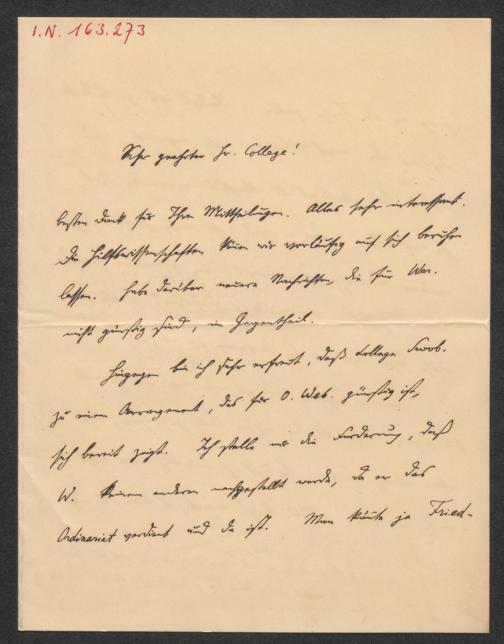 I.N. 163.273
Sehr geehrter Hr. College!
besten Dank für Ihre Mittheilungen. Alles sehr interessant.
Die Hilfswissenschaften können wir vorläufig auf sich beruhen
lassen. Habe darüber neuere Nachrichten, die für
nicht günstig sind, im Gegentheil.
Hingegen bin ich sehr erfreut, daß College Swob.
zu einem Arrangement, das für O. Web. günstig ist,
sich bereit zeigt. Ich stelle nur die Forderung, daß
W. keinem anderen nachgestellt werde, da er das
Ordinariat verdient und da ist. Man könnte ja Fried-